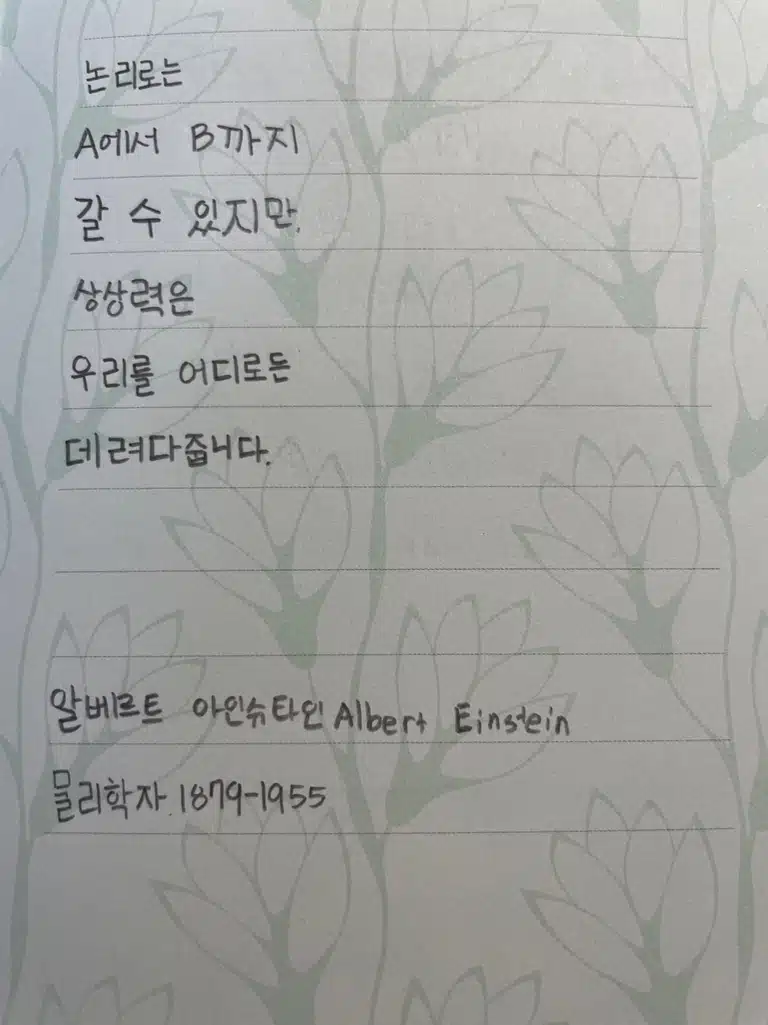 논리로는
A에서 B까지
갈 수 있지만,
상상력은
우리를 어디로든
데려다줍니다.
알베르트 아인슈타인 Albert Einstein
물리학자. 1879-1955